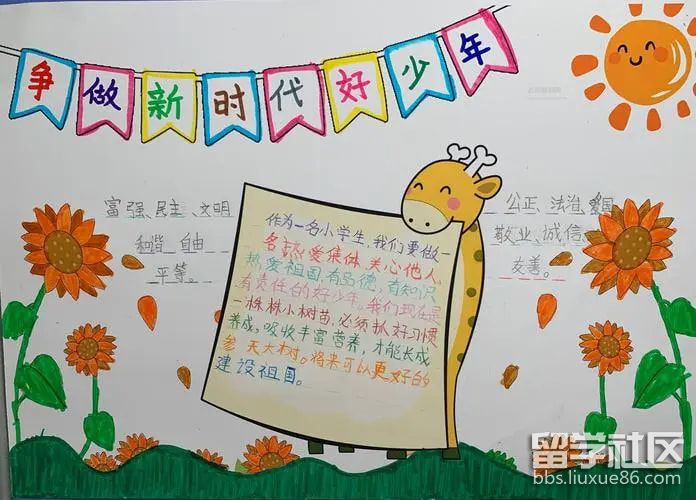 争做新时代好少年
富强、民主、文明
和谐 自由
平等。
作为一名小学生,我们要做一
名热爱集体,关心他人,
热爱祖国,有马德,有知识
有责任的好少年。我们现在是
一株株小树苗,必须抓好习惯
养成,吸收丰富营养,才能长成
参天大树。将来可以更好的
建设祖国。
公正、法治、爱国
敬业、诚信
友善。
留学社区
bbs.liuxue86.com